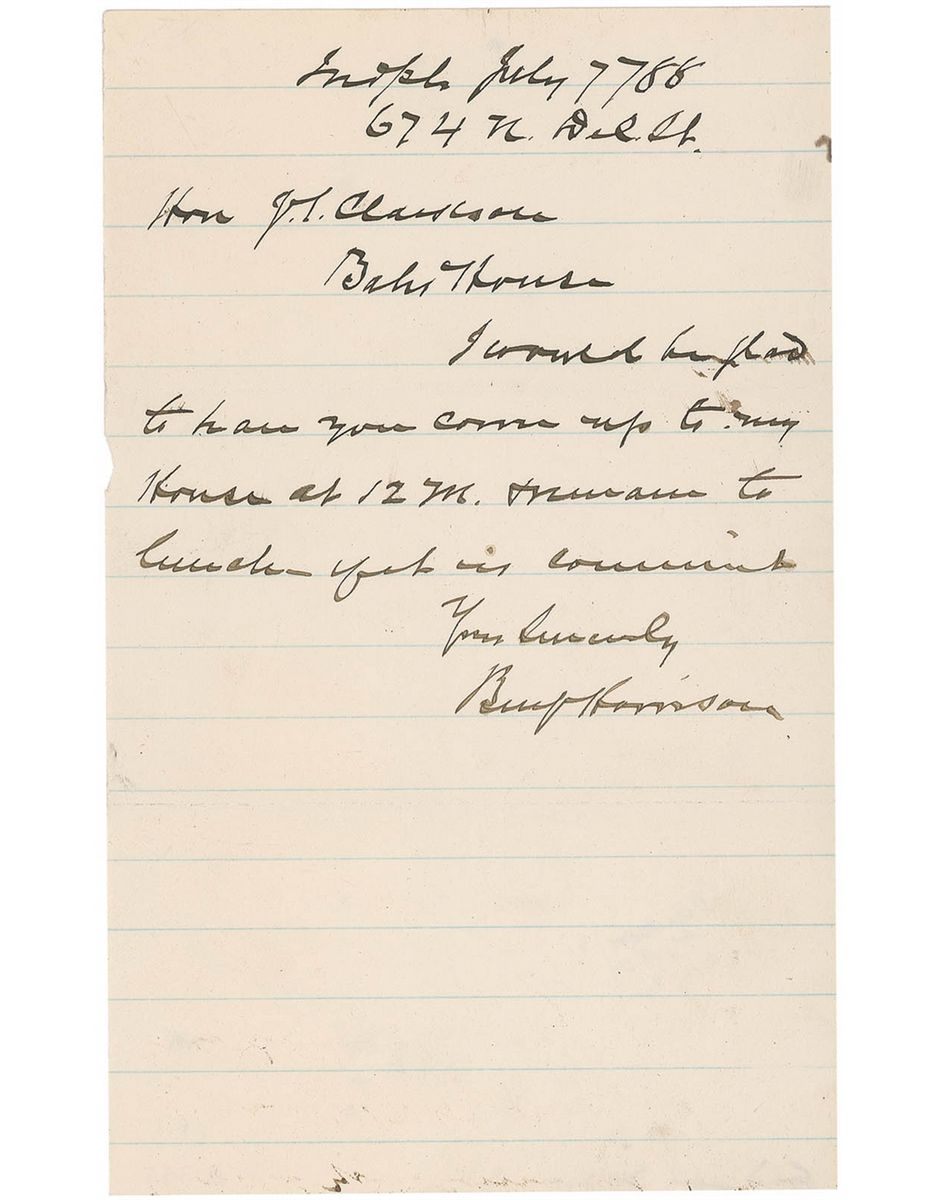 Indpls July 7 / 88
674 N. Del. St.
Hon J.S. Clarkson
Bates House
I would be glad
to have you come up to my
House at 12 M. & remain to
lunch – if it is convenient
Yours Sincerely
Benj Harrison